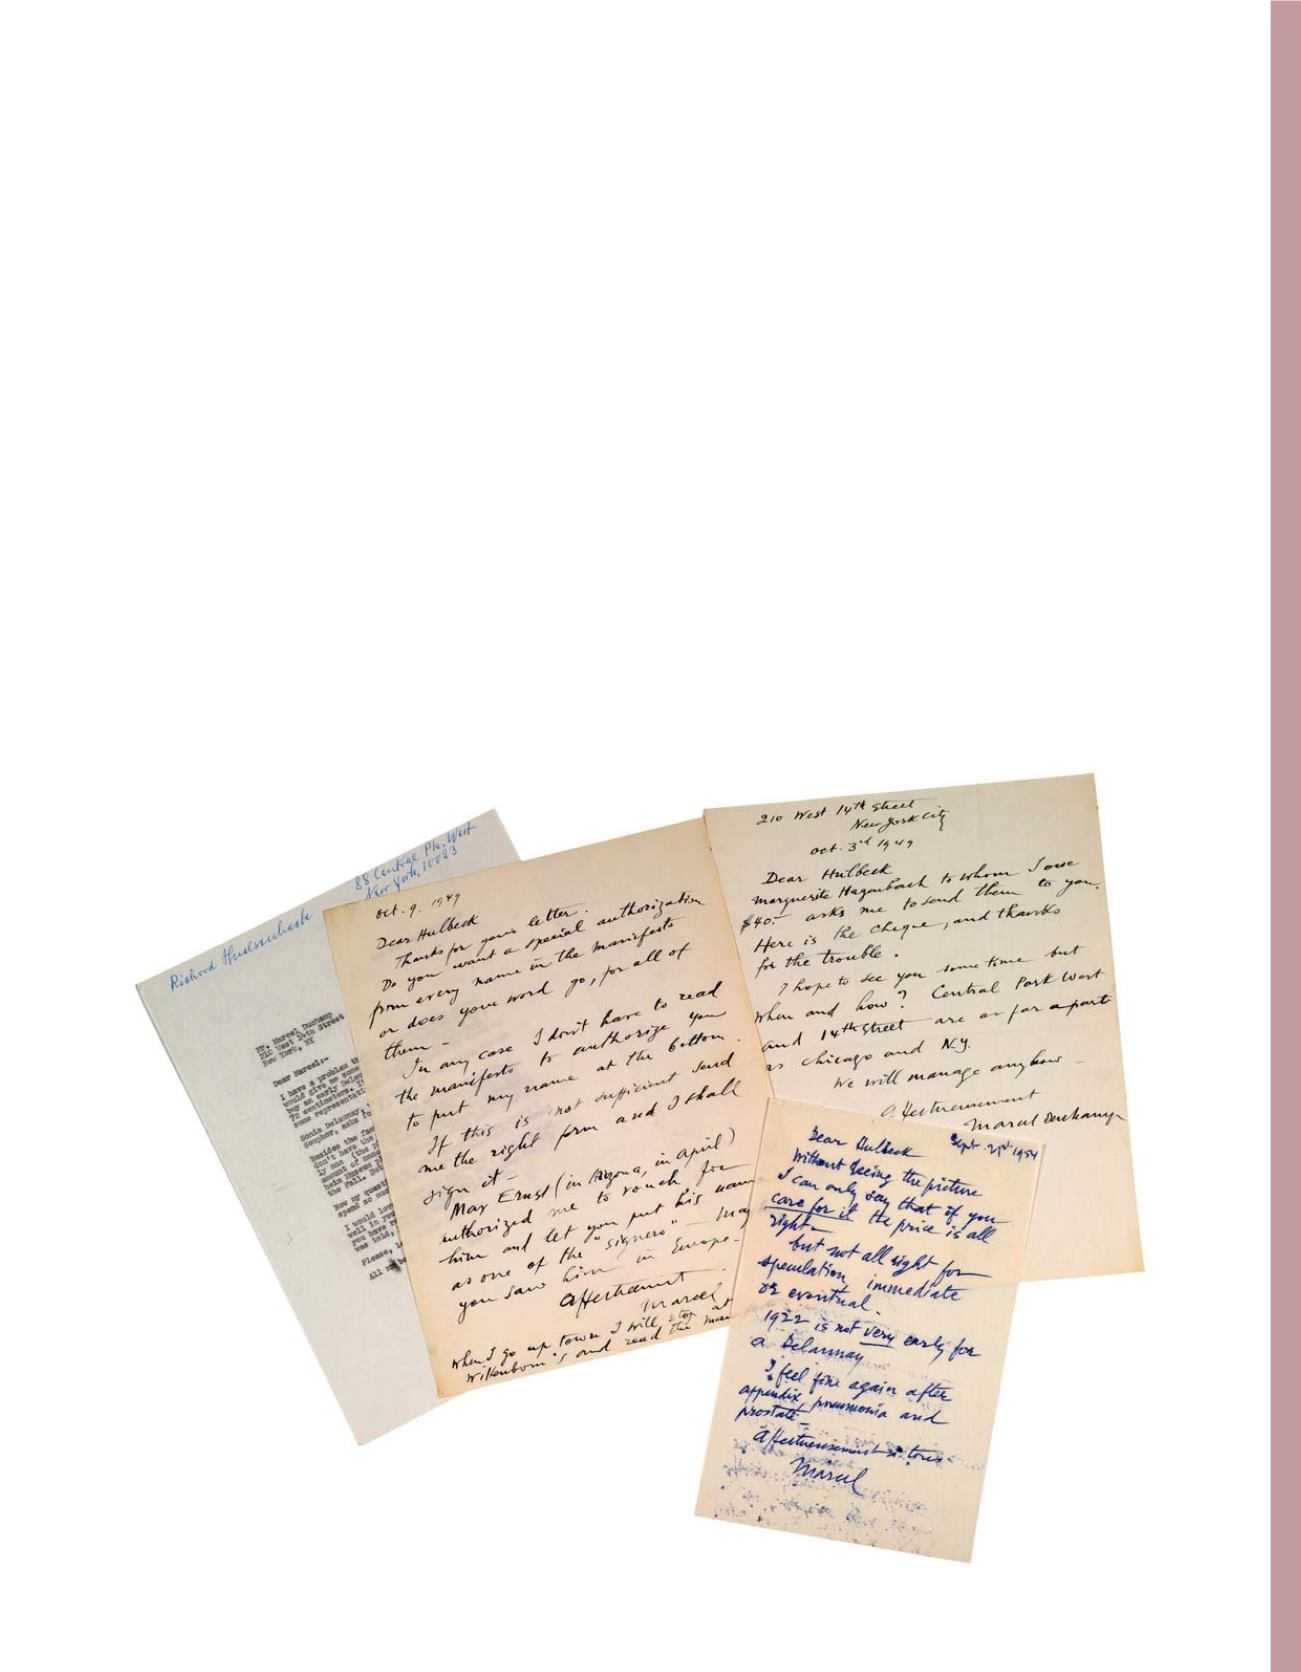 88 Central Pk. West
New York, 10023
Richard Huelsenbeck
Mr. Marcel Duchamp
210 West 14th Street
New York, NY
Dear Marcel:-
I have a problem
would give me some
buy an early
72 centimeters.
some
Sonia Delaunay,
Seuphor, asks
Besides the
don't have the
ly one
amount of
the Fall.
Now my
spend so
I would
well in
you have
was told,
Please,
All
Oct. 9. 1949
Dear Hulbeck
Thanks for your letter.
Do you want a special authorization
from every name in the manifesto
or does your word go, for all of
them –
In any case I don't have to read
the manifesto to authorize you
to put my name at the bottom.
If this is not sufficient send
me the right form and I shall
sign it –
Max Ernst (in Arizona, in april)
authorized me to vouch for
him and let you put his name
as one of the "signers" – may
you saw him in Europe –
Affectueust
Marcel
When I go up town I will stop at
Wittenborn's and read the
210 West 14th Street
New York City
Oct. 3d 1949
Dear Hulbeck
Marguerite Hagenbach to whom I owe
$40.– asks me to send them to you.
Here is the cheque, and thanks
for the trouble.
I hope to see you some time but
when and how? Central Park West
and 14th Street are as far apart
as Chicago and N.Y.
We will manage anyhow –
affectueusement
Marcel Duchamp
Sept. 21st 1954
Dear Hulbeck
Without seeing the picture
I can only say that if you
care for it the price is all
right –
but not all right for
speculation immediate
or eventual.
1922 is not very early for
a Delaunay
I feel fine again after
appendix, pneumonia and
prostate –
Affectueusement à tous
Marcel